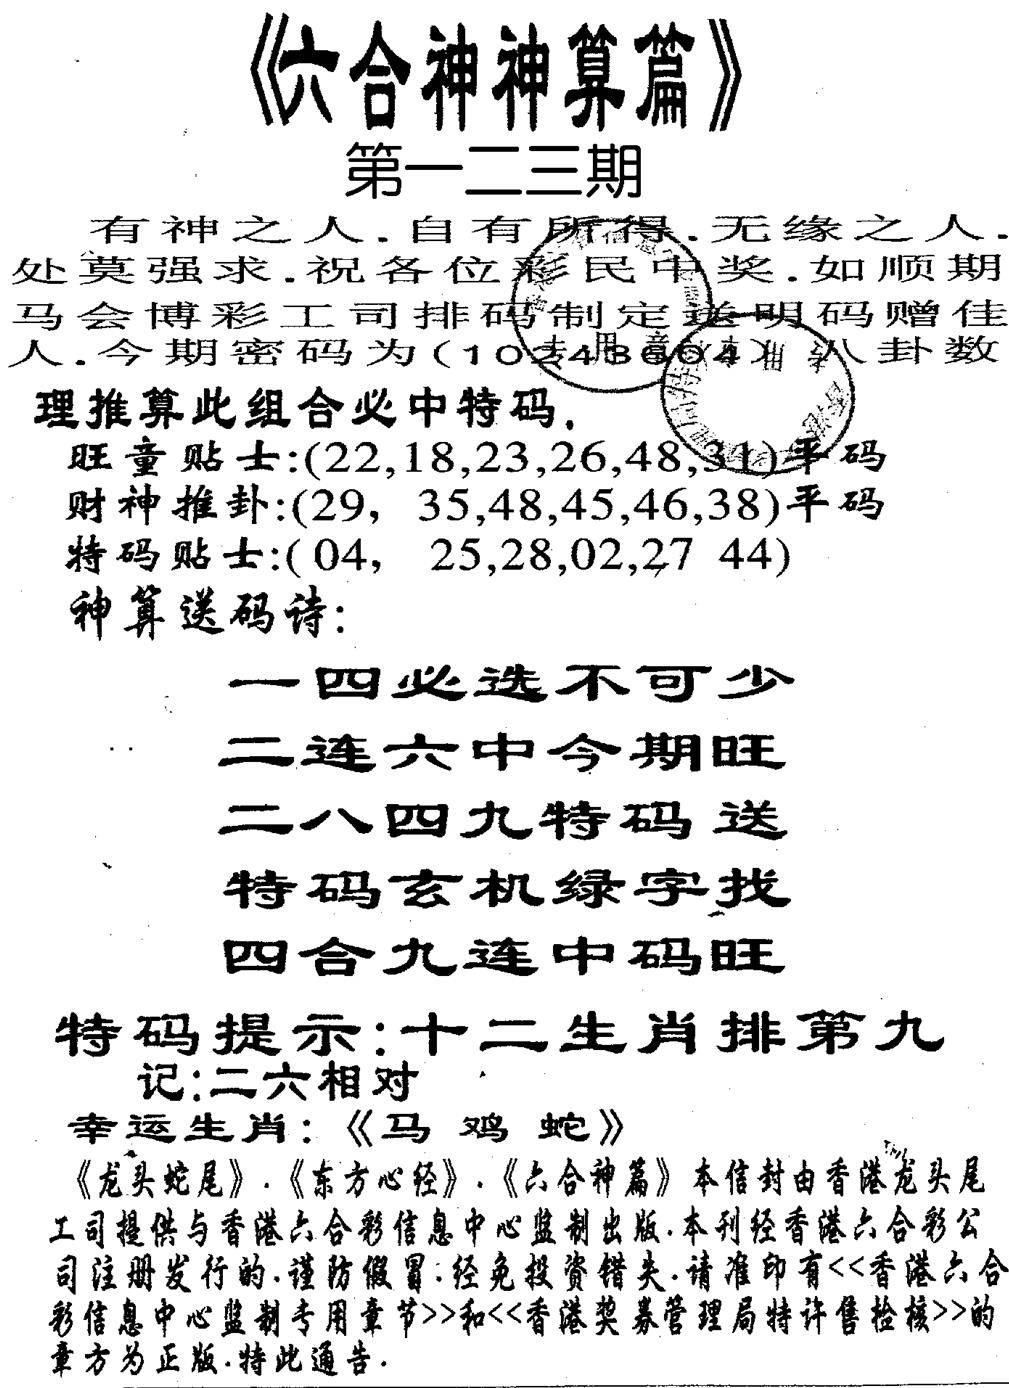 《六合神神算篇》
第一二三期
有神之人.自有所得.无缘之人.
处莫强求.祝各位彩民中奖.如顺期
马会博彩工司排码制定送明码赠佳
人.今期密码为(10243604)八卦数
理推算此组合必中特码.
旺童贴士:(22,18,23,26,48,31)平码
财神推卦:(29, 35,48,45,46,38)平码
特码贴士:(04, 25,28,02,27 44)
神算送码诗:
一四必选不可少
二连六中今期旺
二八四九特码送
特码玄机绿字找
四合九连中码旺
特码提示:十二生肖排第九
记:二六相对
幸运生肖:《马 鸡 蛇》
《龙头蛇尾》.《东方心经》.《六合神篇》本信封由香港龙头尾
工司提供与香港六合彩信息中心监制出版.本刊经香港六合彩公
司注册发行的.谨防假冒:经免投资错失.请准印有<<香港六合
彩信息中心监制专用章节>>和<<香港奖券管理局特许售检核>>的
章方为正版.特此通告.